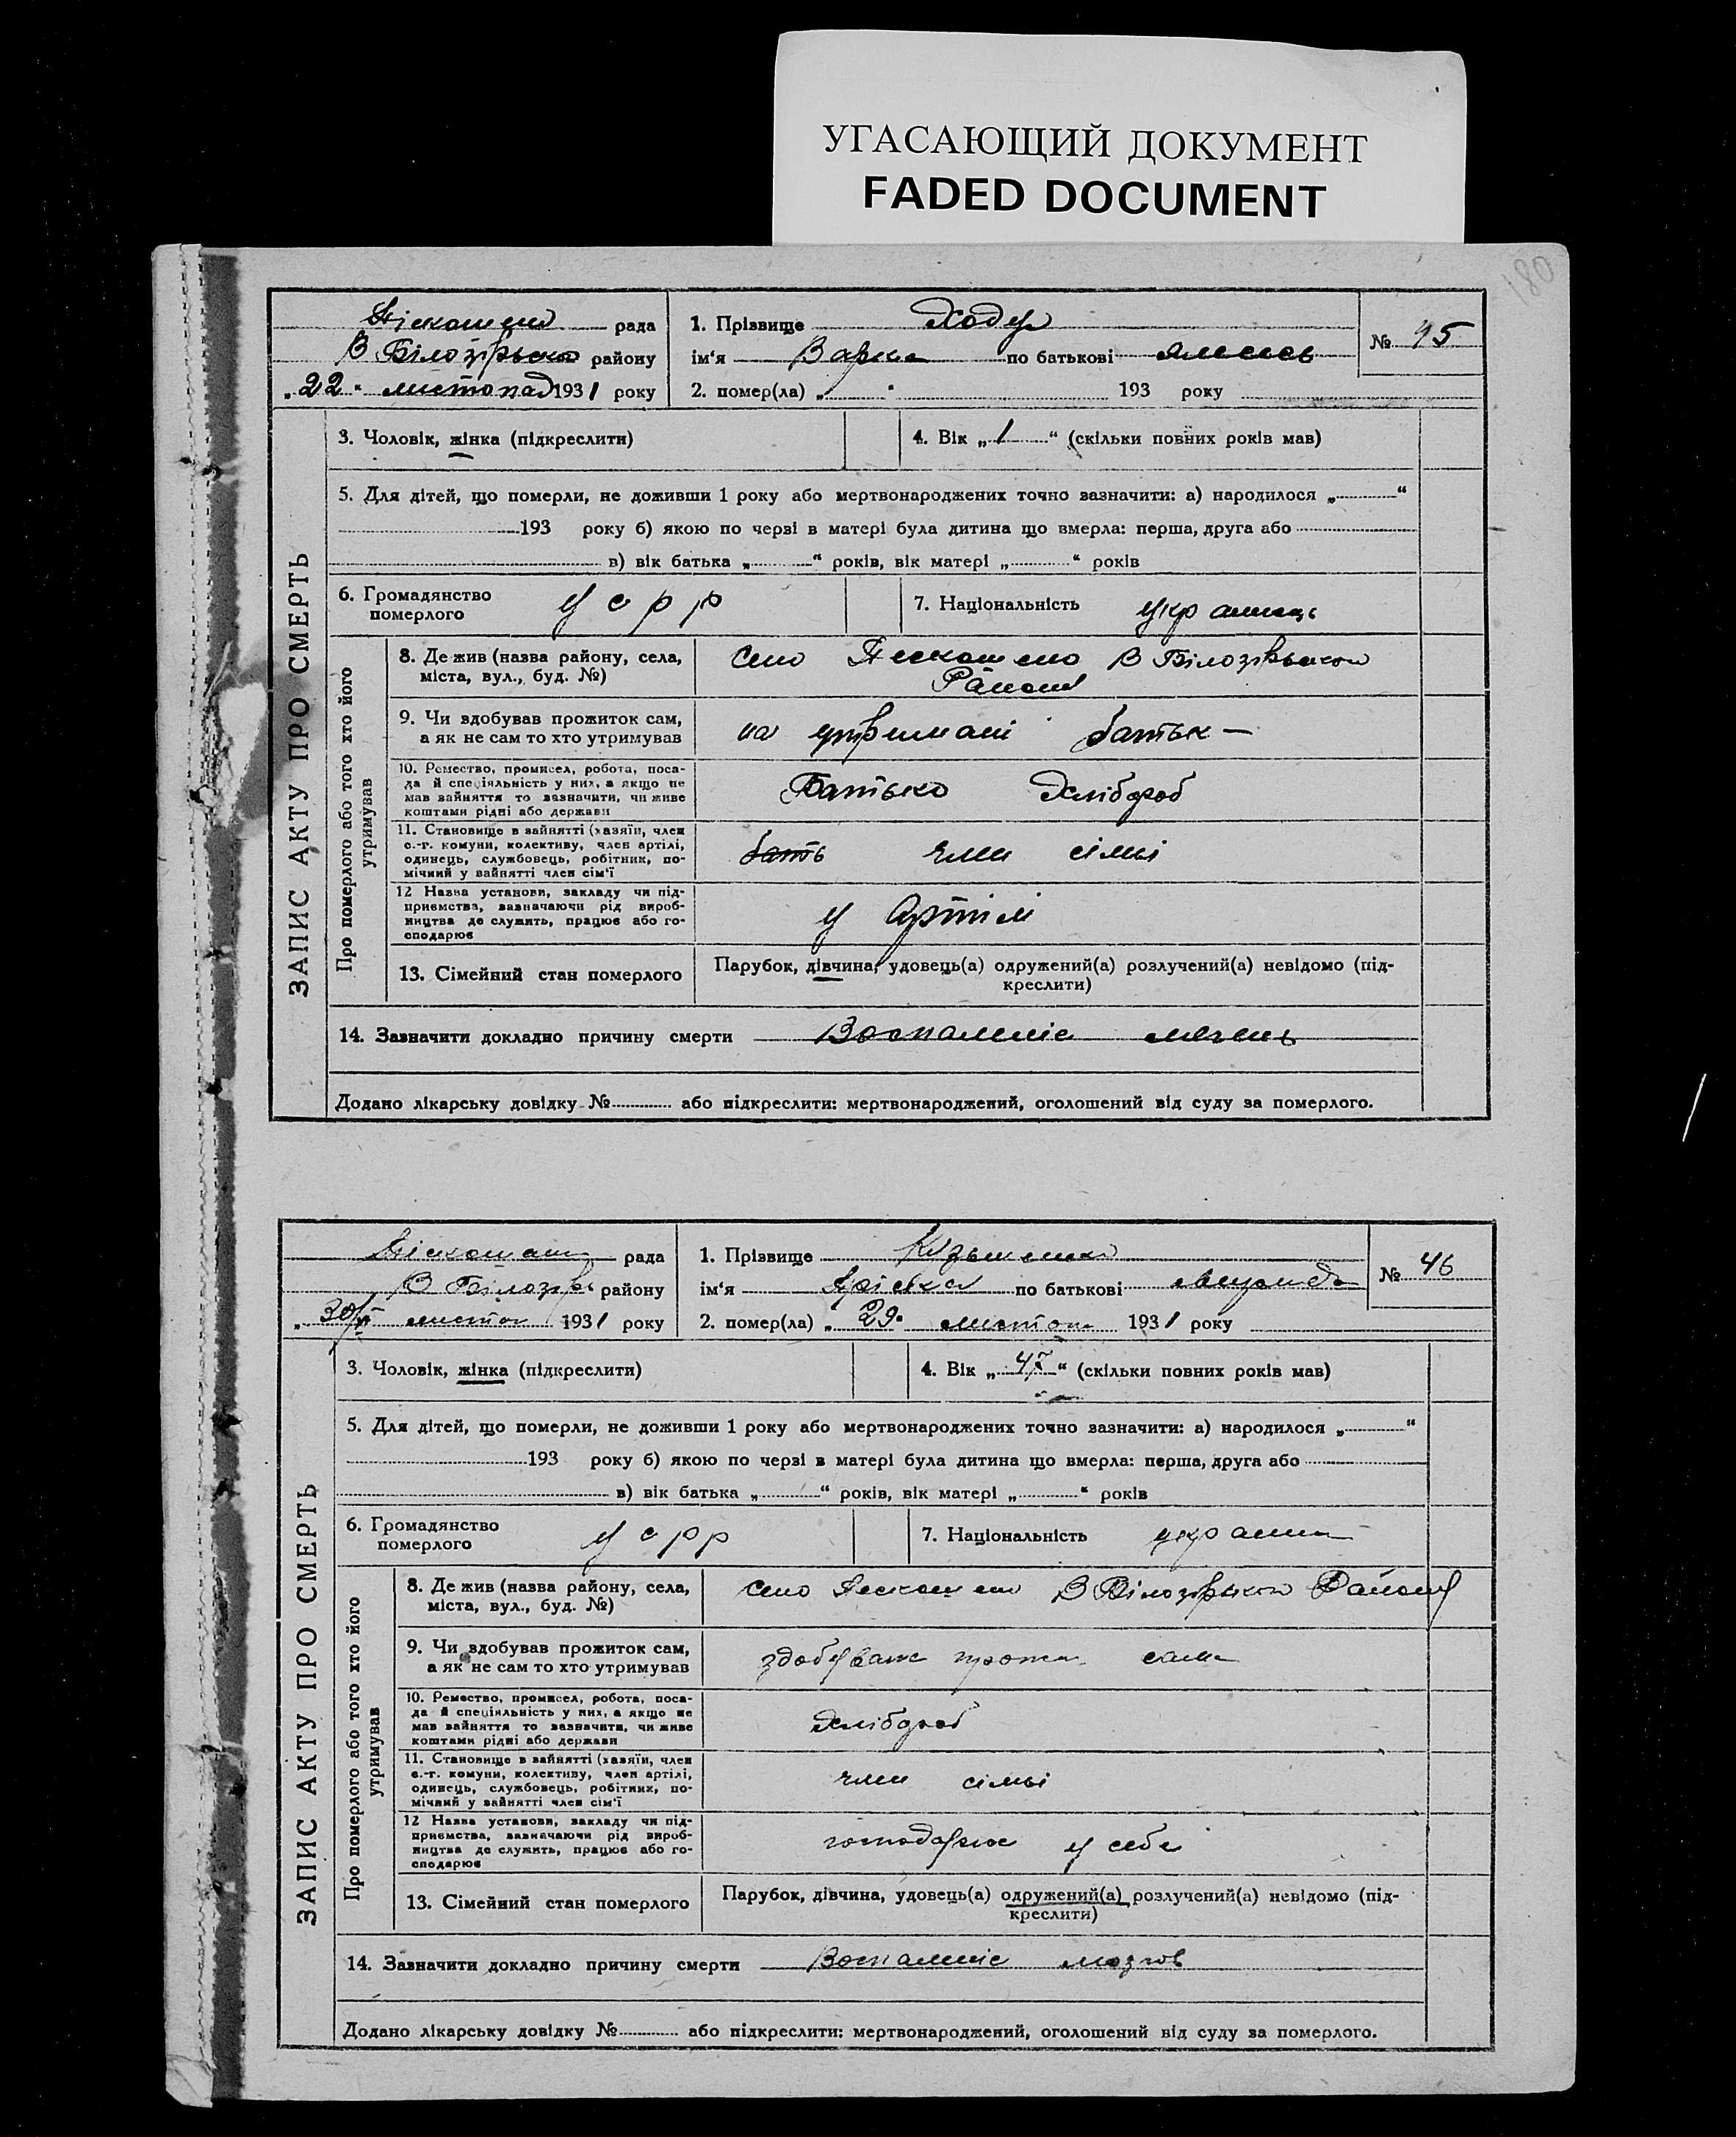 УГАСАЮЩИЙ ДОКУМЕНТ
FADED DOCUMENT
180
рада
В Білозірсько району
„22“ листопад 1931 року
1. Прізвище Ходу
ім‘я Варка по батькові
2. помер(ла) „ “ 193 року
№ 45
ЗАПИС АКТУ ПРО СМЕРТЬ
3. Чоловік, жінка (підкреслити)
4. Вік „1“ (скільки повних років мав)
5. Для дітей, що померли, не доживши 1 року або мертвонароджених точно зазначити: а) народилося „ “
193 року б) якою по черзі в матері була дитина що вмерла: перша, друга або
в) вік батька „ “ років, вік матері „ “ років
6. Громадянство
померлого
усрр
7. Національність
Про померлого або того хто його
утримував
8. Де жив (назва району, села,
міста, вул., буд. №)
село В Білозірськом
Району
9. Чи здобував прожиток сам,
а як не сам то хто утримував
на утримані батьк
10. Ремество, промисел, робота, поса-
да й спеціяльність у них, а якщо не
мав зайняття то зазначити, чи живе
коштами рідні або держави
Батько хлібороб
11. Становище в зайнятті (хазяїн, член
с.-г. комуни, колективу, член артілі,
одинець, службовець, робітник, по-
мічний у зайнятті член сім'ї
бать член сімьі
12 Назва установи, закладу чи під-
приємства, зазначаючи рід вироб-
ництва де служить, працює або го-
сподарює
у Артілі
13. Сімейний стан померлого
Парубок, дівчина, удовець(а) одружений(а) розлучений(а) невідомо (під-
креслити)
14. Зазначити докладно причину смерти Воспаленіє
Додано лікарську довідку № або підкреслити: мертвонароджений, оголошений від суду за померлого.
рада
В Білозір району
„30/XI листоп 1931 року
1. Прізвище
ім‘я по батькові
2. помер(ла) „29“ листопа 1931 року
№ 46
ЗАПИС АКТУ ПРО СМЕРТЬ
3. Чоловік, жінка (підкреслити)
4. Вік „47“ (скільки повних років мав)
5. Для дітей, що померли, не доживши 1 року або мертвонароджених точно зазначити: а) народилося „ “
193 року б) якою по черзі в матері була дитина що вмерла: перша, друга або
в) вік батька „ “ років, вік матері „ “ років
6. Громадянство
померлого
усрр
7. Національність
Про померлого або того хто його
утримував
8. Де жив (назва району, села,
міста, вул., буд. №)
село В Білозірьком Району
9. Чи здобував прожиток сам,
а як не сам то хто утримував
сама
10. Ремество, промисел, робота, поса-
да й спеціяльність у них, а якщо не
мав зайняття то зазначити, чи живе
коштами рідні або держави
хлібороб
11. Становище в зайнятті (хазяїн, член
с.-г. комуни, колективу, член артілі,
одинець, службовець, робітник, по-
мічний у зайнятті член сім'ї
член сімьі
12 Назва установи, закладу чи під-
приємства, зазначаючи рід вироб-
ництва де служить, працює або го-
сподарює
господарює у себе
13. Сімейний стан померлого
Парубок, дівчина, удовець(а) одружений(а) розлучений(а) невідомо (під-
креслити)
14. Зазначити докладно причину смерти Воспаленіє мозгов
Додано лікарську довідку № або підкреслити: мертвонароджений, оголошений від суду за померлого.